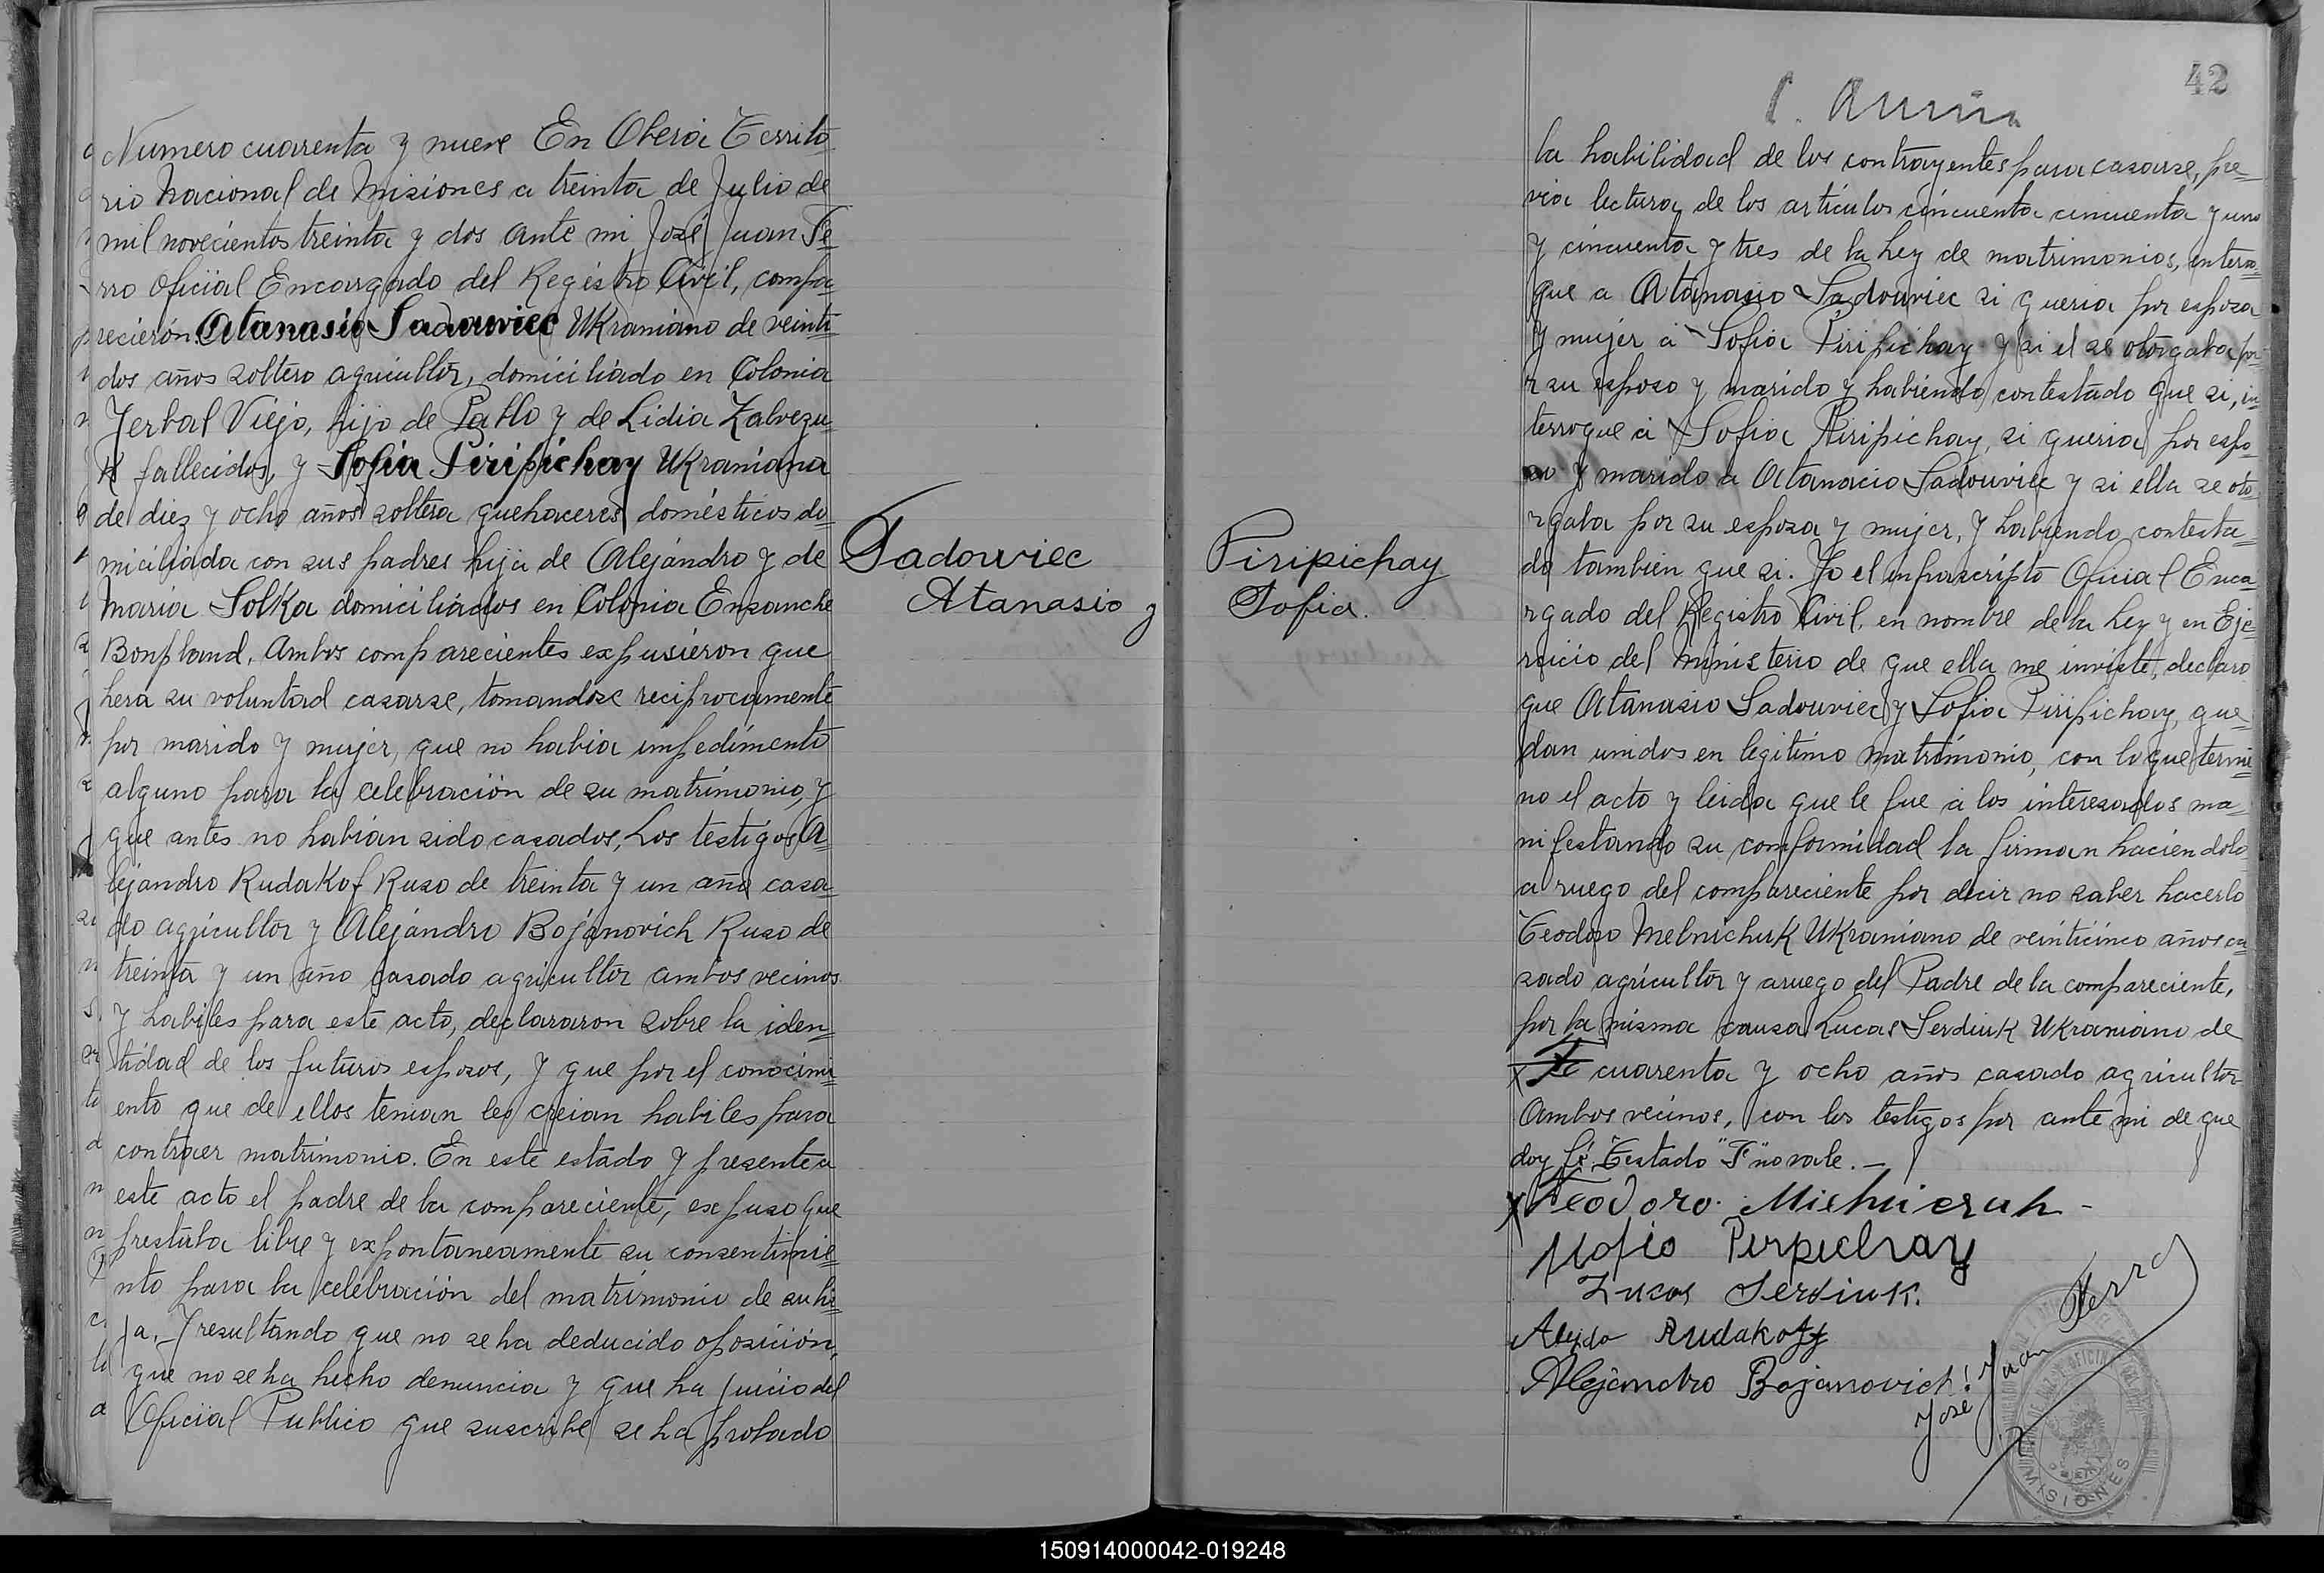 Numero cuarenta y nueve En Oberá Territo
rio Nacional de Misiones a treinta de Julio de
mil novecientos treinta y dos ante mi José Juan Fe=
rro Oficial Encargado del Registro Civil, compa=
recierón Atanasio Sadowiec Ukraniano de veinti=
dos años soltero agricultor, domiciliado en Colonia
Yerbal Viejo, hijo de Pablo y de Lidia Zalvezu=
k fallecidos, y Sofia Piripichay Ukraniana
de diez y ocho años soltera quehaceres domésticos do=
miciliada con sus padres hija de Alejandro y de
Maria Solka domiciliados en Colonia Ensanche
Bonpland. Ambos comparecientes expusieron que
hera su voluntad casarse, tomandose reciprocamente
por marido y mujer, que no habia impedimento
alguno para la celebración de su matrimonio, y
que antes no habian sido casados, Los testigos A=
lejandro Rudakof Ruso de treinta y un año casa=
do agricultor y Alejandro Bojanovich Ruso de
treinta y un año casado agricultor ambos vecinos
y habiles para este acto, declararon sobre la iden=
tidad de los futuros esposos, y que por el conocimi=
ento que de ellos tenian les creian habiles para
contraer matrimonio. En este estado y presente a
este acto el padre de la compareciente, expuso que
prestaba libre y expontaneamente su consentimie=
nto para la celebración del matrimonio de su hi=
ja. Y resultando que no se ha deducido oposición,
que no se ha hecho denuncia y que ha juicio del
Oficial Publico que suscribe se ha probado
Sadowiec
Atanasio y
Piripichay
Sofia.
42
la habilidad de los contrayentes para casarse, pre=
via lectura de los articulos cincuenta cincuenta y uno
y cincuenta y tres de la Ley de matrimonios, interro=
gue a Atanasio Sadouviec si queria por esposa
y mujer a Sofia Piripichay y si el se otorgaba po=
r su esposo y marido y habiendo contestado que si, in=
terrogue a Sofia Piripichay, si queria por espo=
so y marido a Atanacio Sadouviec y si ella se oto=
rgaba por su esposa y mujer, y habiendo contesta=
do tambien que si. Yo el infrascripto Oficial Enca=
rgado del Registro Civil, en nombre de la Ley y en Eje=
rcicio del Ministerio de que ella me inviste, declaro
que Atanasio Sadouviec y Sofia Piripichay, que=
dan unidos en legitimo matrimonio, con lo que termi=
no el acto y leida que le fue a los interesados ma=
nifestando su conformidad la firman haciendolo
a ruego del compareciente por decir no saber hacerlo
Teodoro Melnichuk Ukraniano de veinticinco años ca=
sado agricultor y a ruego del Padre de la compareciente,
por la misma causa Lucas Serdiuk Ukraniano de
cuarenta y ocho años casado agricultor
Ambos vecinos, con los testigos por ante mi de que
doy fé. Testado "F" no vale.—
Feodoro Michnieruk -
Sofia Pirpichay
Lucas Serdiuk.
Alejdo Rudakoff
Alejandro Bojanovich
José Juan Ferro
MISIONES
150914000042-019248